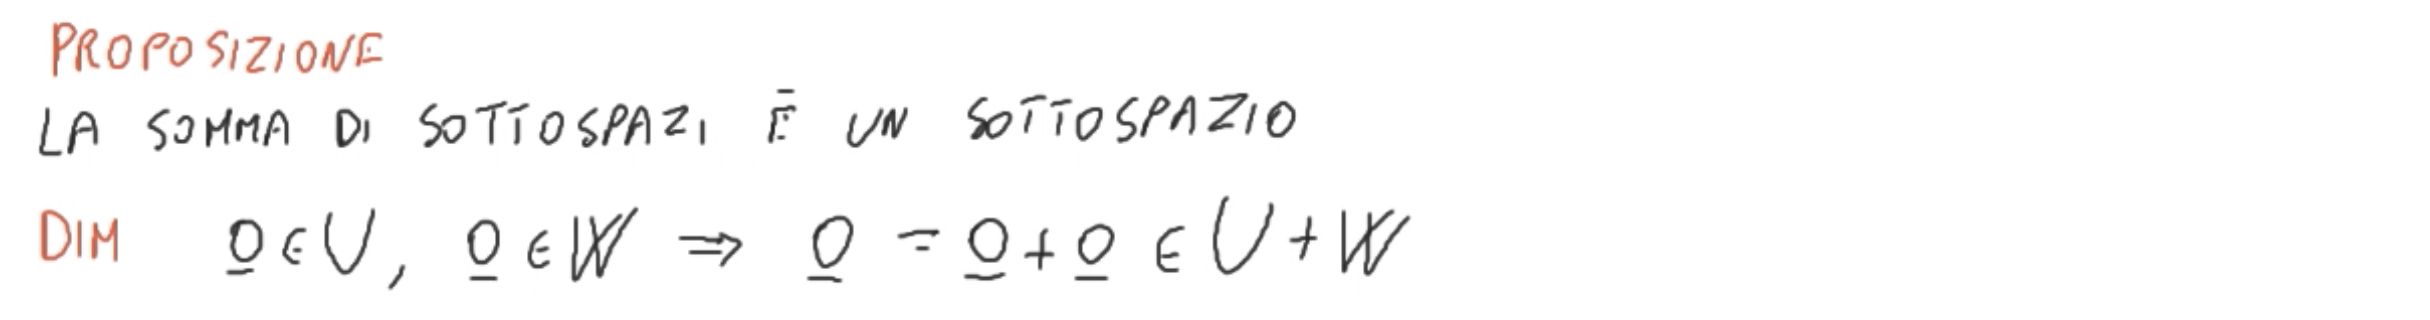 PROPOSIZIONE
LA SOMMA DI SOTTOSPAZI Ē UN SOTTOSPAZIO
DIM 0̲ ∈ U, 0̲ ∈ W ⇒ 0̲ = 0̲ + 0̲ ∈ U + W